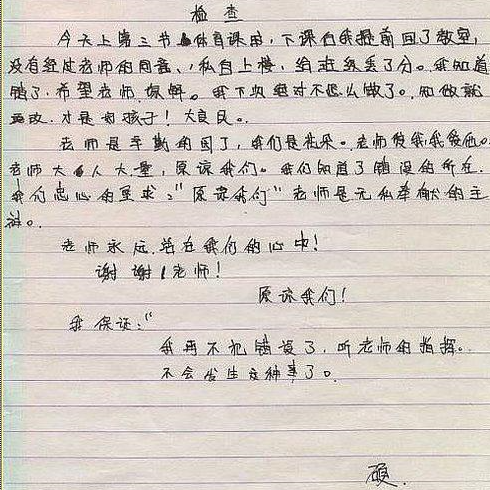 检查
今天上第三节体育课时,下课后我提前回了教室,
没有经过老师的同意、私自上楼,给班级丢了分。我知道
错了,希望老师原谅。我下次绝对不怎么做了。知做就
改,才是好孩子!大良民。
老师是辛勤的园丁,我们是花朵。老师爱我我爱他。
老师大人大量,原谅我们。我们知道了错误的所在.
我们忠心的要求:"原谅我们"老师是无私奉献的主
。
老师永远活在我们的心中!
谢谢!老师!
原谅我们!
我保证:"
我再不犯错误了,听老师的指挥。
不会发生这种事了。